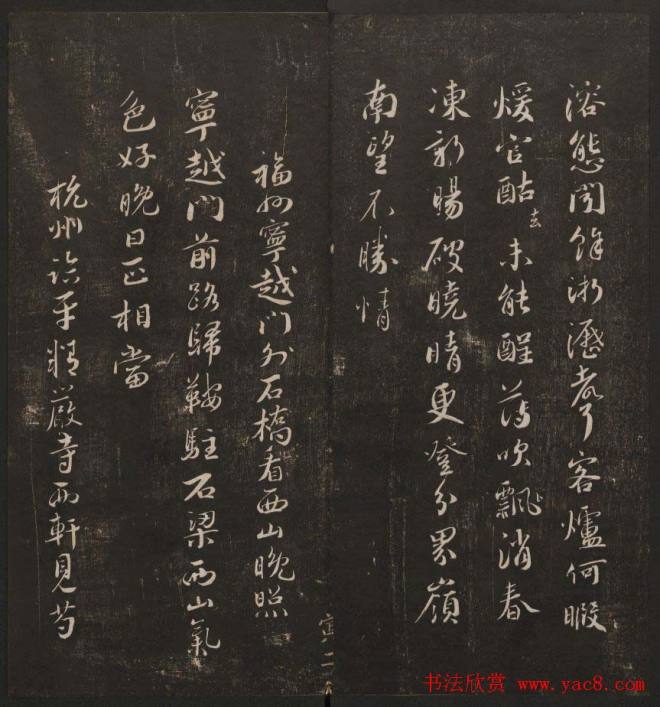 溶態聞餘淅瀝聲客爐何暇
煖官酤去未能醒薄吹飄消春
凍新暘破曉晴更登分界嶺
南望不勝情
福州寧越門外石橋看西山晚照
寧越門前路歸鞍駐石梁西山氣
色好晚日正相當
杭州臨平精嚴寺西軒見芍
书法欣赏 www.yac8.com